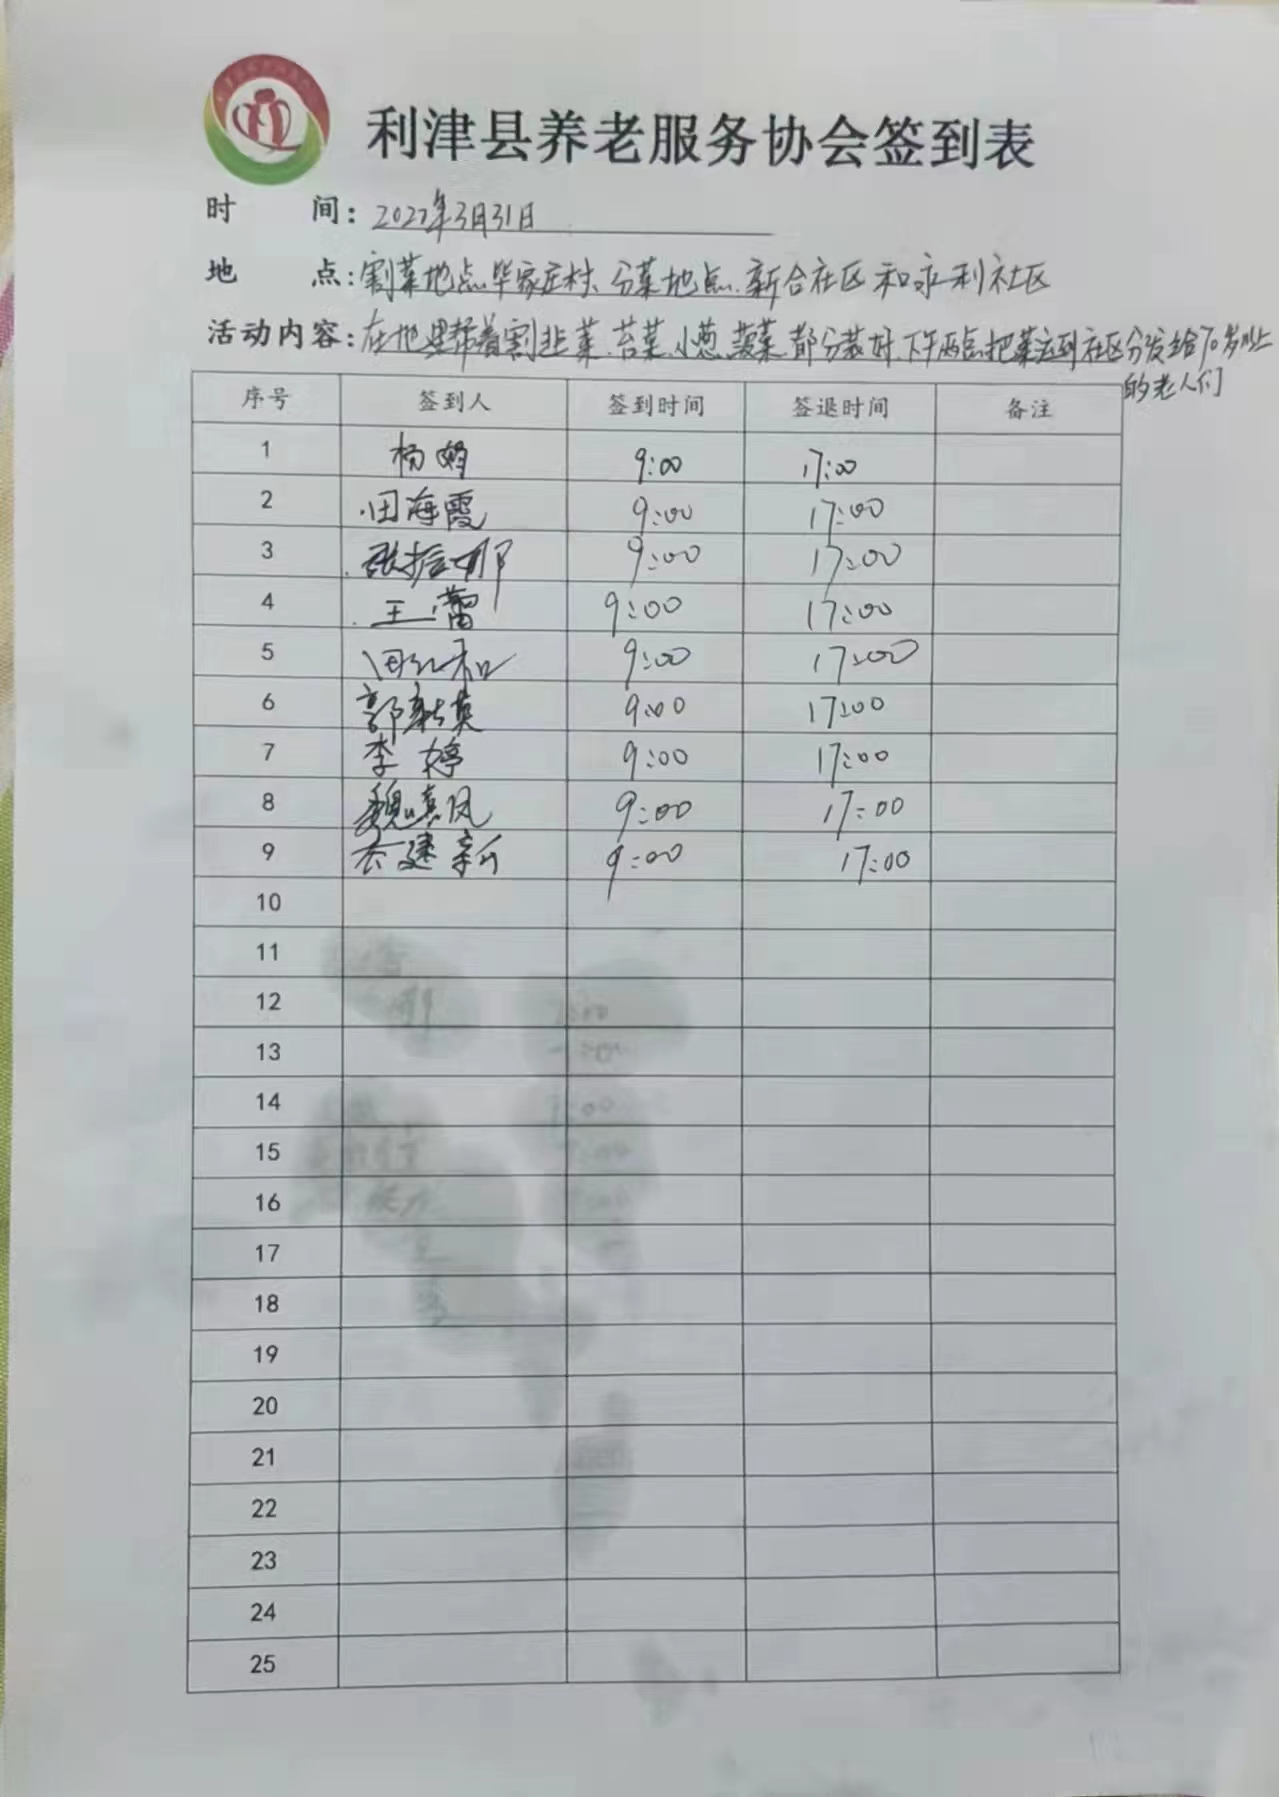 利津县养老服务协会签到表
时 间：2022年3月31日
地 点：割菜地点.毕家庄村、分菜地点.新合社区和永利社区
活动内容：在地里帮着割韭菜、苔菜、小葱、菠菜、都分装好.下午两点把菜运到社区分发给70岁以上
的老人们
序号 签到人 签到时间 签退时间 备注
1 杨 9:00 17:00
2 田海霞 9:00 17:00
3 张振娜 9:00 17:00
4 王蕾 9:00 17:00
5 9:00 17:00
6 郭新英 9:00 17:00
7 李婷 9:00 17:00
8 魏 凤 9:00 17:00
9 建新 9:00 17:00
10
11
12
13
14
15
16
17
18
19
20
21
22
23
24
25